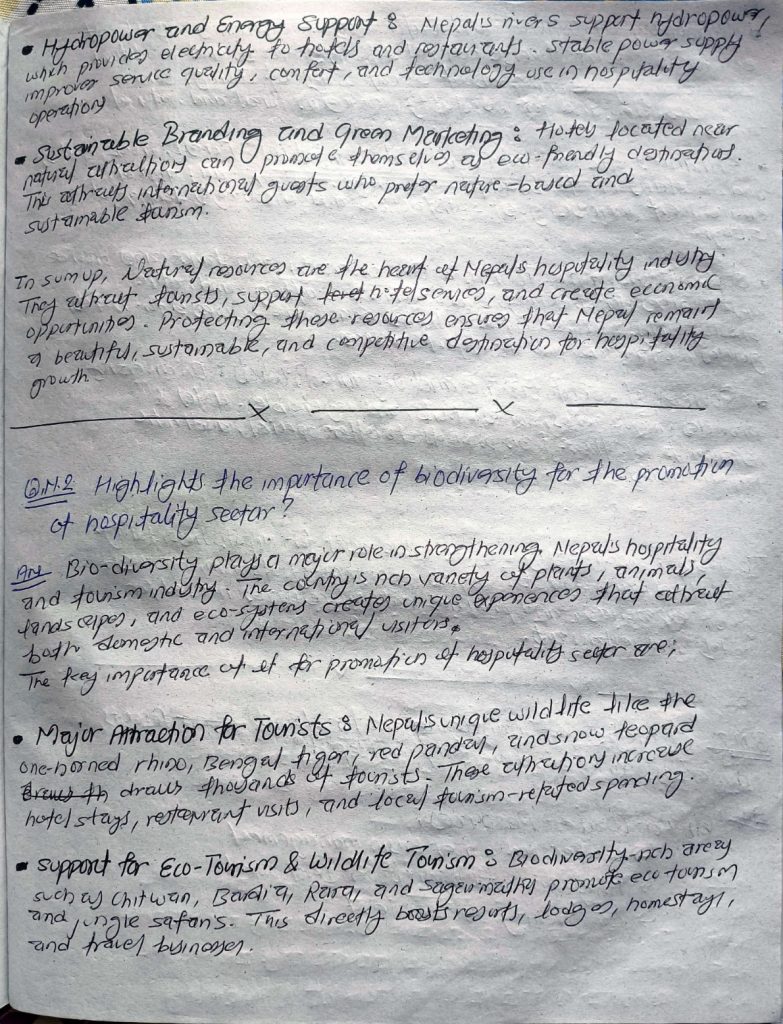 • Hydropower and Energy Support : Nepal's rivers support hydropower,
which provides electricity to hotels and restaurants. stable power supply
improves service quality, comfort, and technology use in hospitality
operations
• Sustainable Branding and Green Marketing : Hotels located near
natural attractions can promote themselves as eco-friendly destinations.
This attracts international guests who prefer nature-based and
sustainable tourism.
In sum up, Natural resources are the heart of Nepal's hospitality industry
They attract tourists, support hotel services, and create economic
opportunities. Protecting these resources ensures that Nepal remains
a beautiful, sustainable, and competitive destination for hospitality
growth
x x
Q.N.2 Highlights the importance of biodiversity for the promotion
of hospitality sector?
Ans Bio-diversity plays a major role in strengthening Nepal's hospitality
and tourism industry. The country's rich variety of plants, animals,
landscapes, and eco-systems creates unique experiences that attract
both domestic and international visitors.
The key importance of it for promotion of hospitality sector are;
• Major Attraction for Tourists : Nepal's unique wildlife like the
one-horned rhino, Bengal tiger, red pandas, and snow leopard
draws thousands of tourists. These attractions increase
hotel stays, restaurant visits, and local tourism-related spending.
• Support for Eco-Tourism & Wildlife Tourism : Biodiversity-rich areas
such as Chitwan, Bardia, Rara, and Sagarmatha promote eco tourism
and jungle safaris. This directly boosts resorts, lodges, homestays,
and travel businesses.